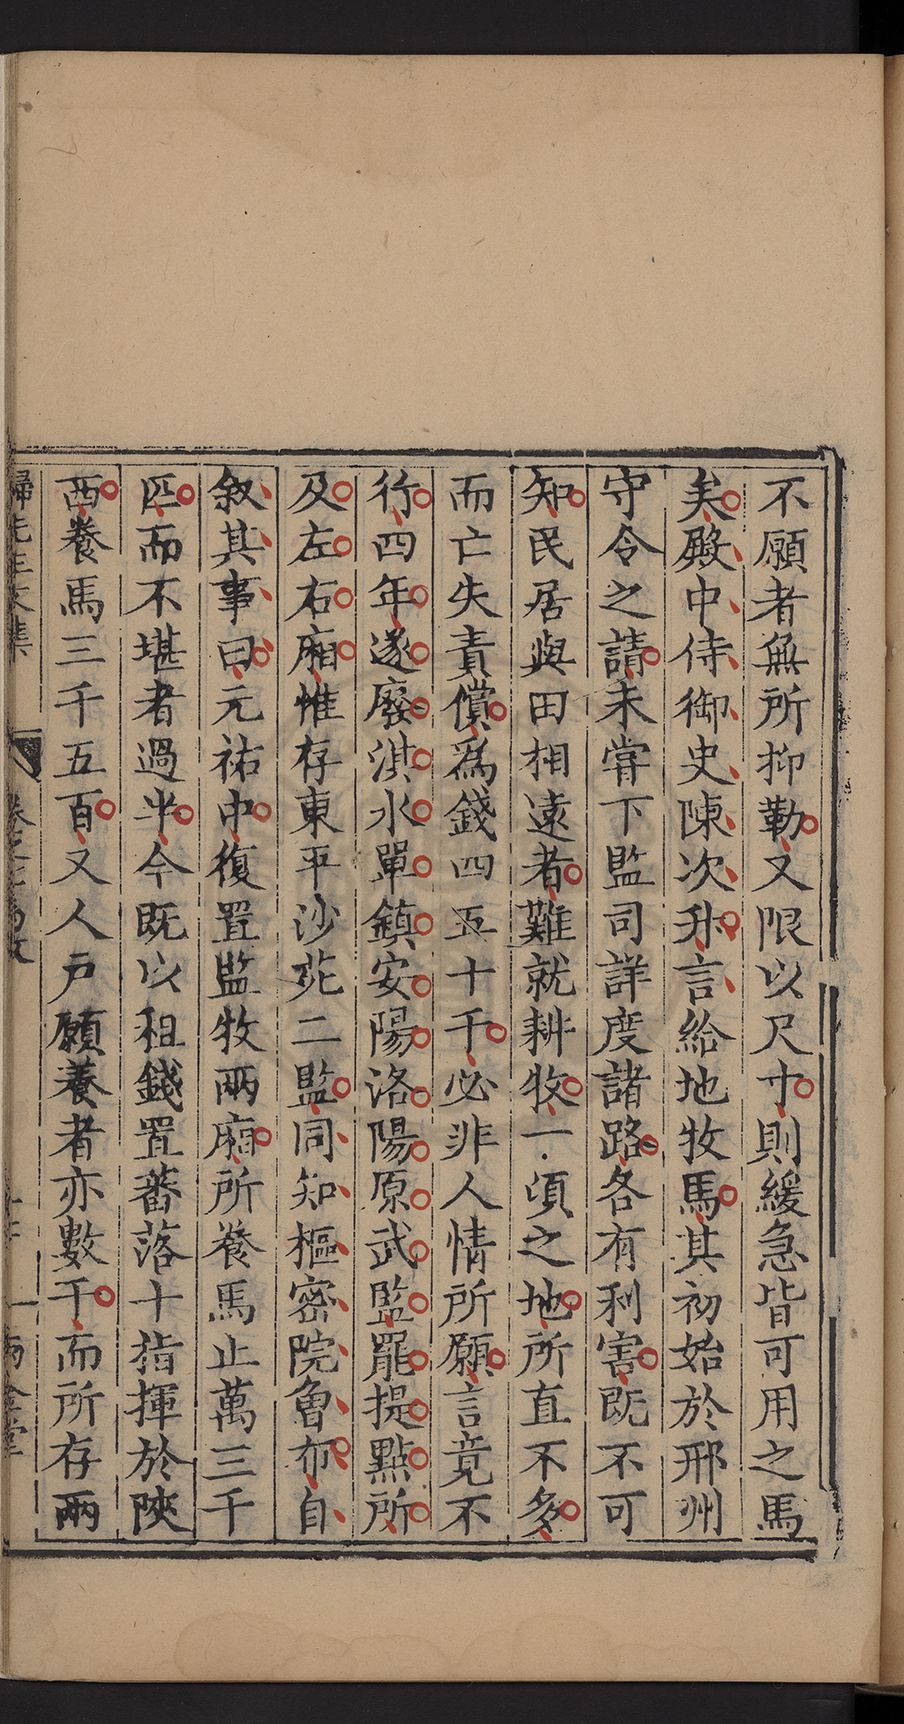 不願者無所抑勒又限以尺寸則緩急皆可用之馬
矣殿中侍御史陳次升言給地牧馬其初始於邢州
守令之請未嘗下監司詳度諸路各有利害既不可
知民居與田相遠者難就耕牧一頃之地所直不多
而亡失責償為錢四五十千必非人情所願言竟不
行四年遂廢淇水單鎮安陽洛陽原武監罷提點所
及左右廂惟存東平沙苑二監同知樞密院曾布自
叙其事曰元祐中復置監牧兩廂所養馬止萬三千
匹而不堪者過半今既以租錢置蕃落十指揮於陝
西養馬三千五百又人戶願養者亦數千而所存兩
歸先生文集